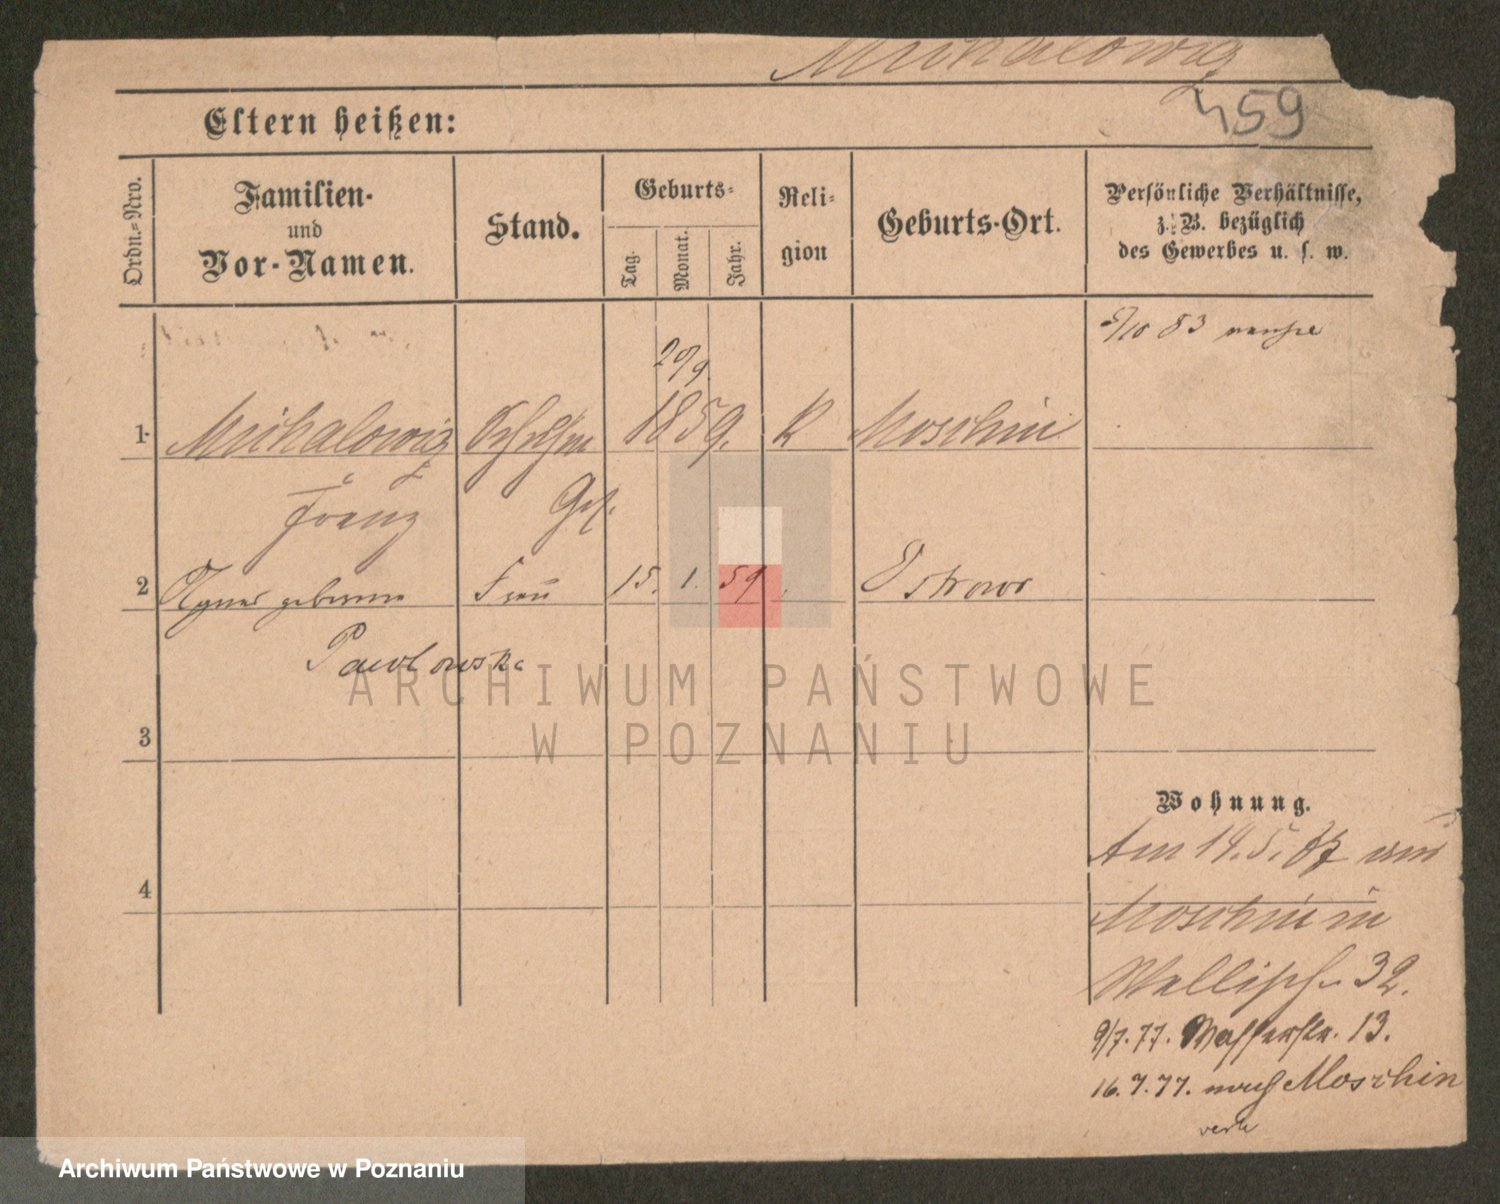 Michalowicz
459
Eltern heißen:
Ordn.=Nro.
Familien-
und
Vor-Namen.
Stand.
Geburts-
Tag.
Monat.
Jahr.
Reli-
gion
Geburts-Ort.
Persönliche Verhältnisse,
z. B. bezüglich
des Gewerbes u. s. w.
/10 83
20/9.
1. Michalowicz 1859. K Moschin
Franz Ges.
2 Agnes geborene Frau 15. 1. 59 Ostrowo
Pawlowska
3
4
Wohnung.
Am 14. 5. 77 aus
Moschin in
Wallisch. 32.
9/7. 77. Wasserstr. 13.
16. 7. 77. nach Moschin
ARCHIWUM PAŃSTWOWE
W POZNANIU
Archiwum Państwowe w Poznaniu